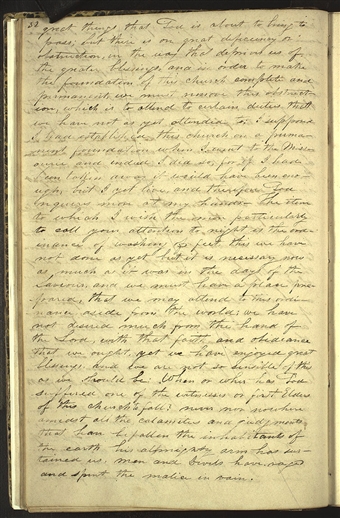 32
great things that God is about to bring to
pass; but there is one great deficiency or
obstruction, in the way that deprives us of
the greater blessings, and in order to make
the foundation of this church complete and
permanent, we must remove this obstruct-
ion, which is to attend to certain duties that
we have not as yet attended to. I supposed
I had established this church on a perma-
nent foundation when I went to the Miss-
ouri and indeed I did so, for if I had
been taken away it would have been eno-
ugh, but I yet live, and therefore God
requires more at my hands. The item
to which I wish the more particularly
to call your attention to night is the ord-
inance of washing of feet, this we have
not done as yet but it is necessary now
as much as it was in the days of the
Saviour, and we must have a place pre-
pared, that we may attend to this ordin-
ance, aside from the world; we have
not desired much from the hand of
the Lord, with that faith and obedience
that we ought, yet we have enjoyed great
blessings, and we are not so sensible of this
as we should be. When or where has God
suffered one of the witnesses or first Elders
of this church to fall? never nor nowhere
amidst all the calamities and judgments
that have befallen the inhabitants of
the earth his almighty arm has sus-
tained us, men and Devils have raged
and spent the malice in vain.